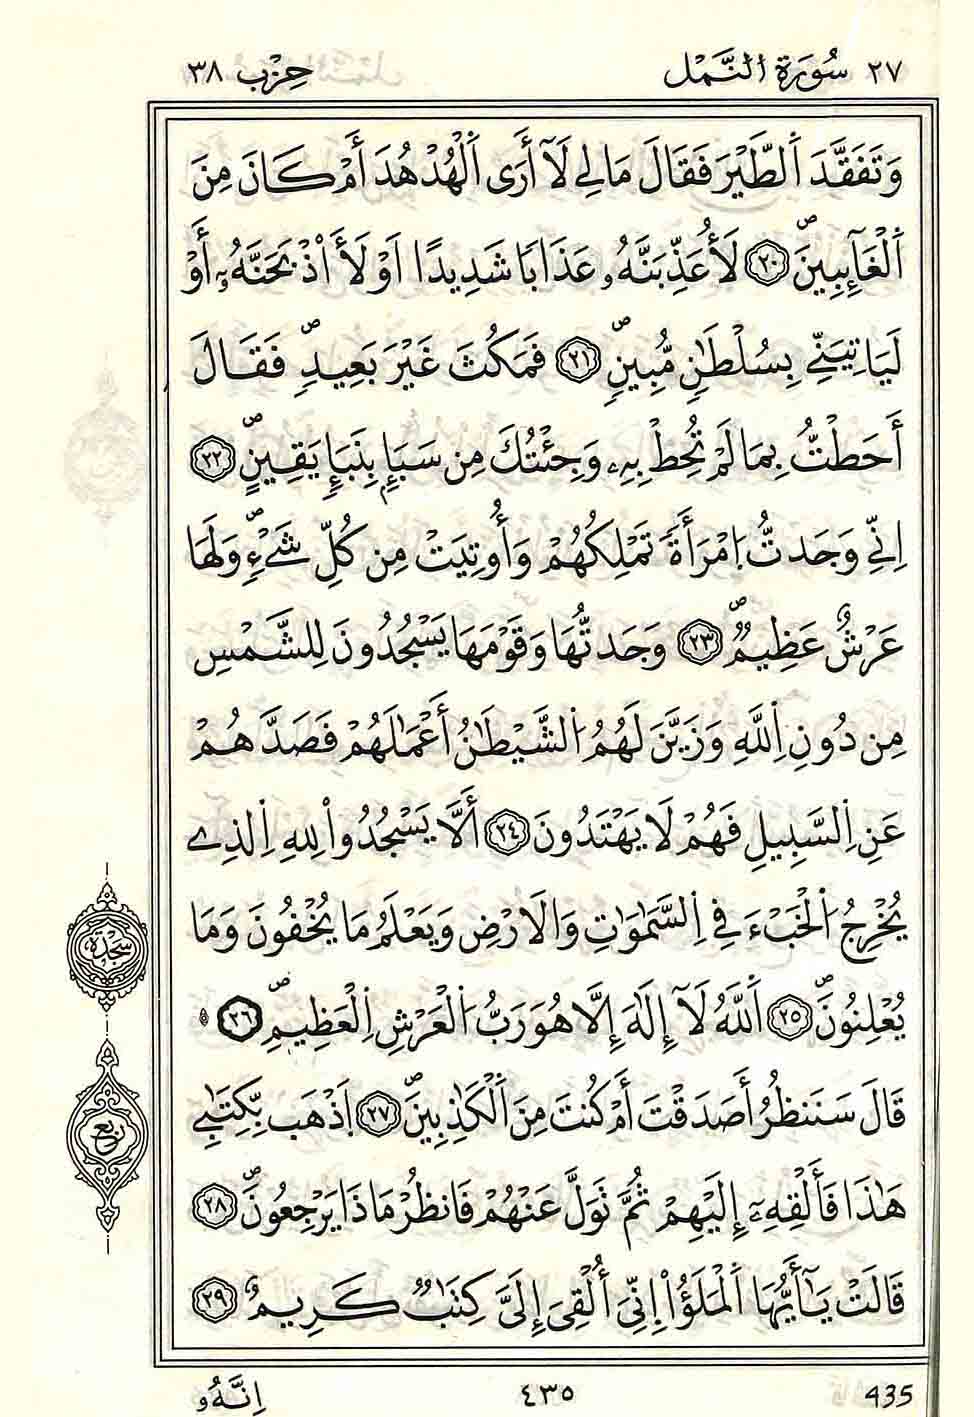 ٢٧ سُورَةُ اَلنَّمْل حِزْب ٣٨
وَتَفَقَّدَ اَلطَّيْرَ فَقَالَ مَا لِيَ لَآ أَرَى اَلْهُدْهُدَ أَمْ كَانَ مِنَ
اَلْغَآئِبِينَۖ ٢٠ لَأُعَذِّبَنَّهُۥ عَذَابًا شَدِيدًا اَوْ لَأَاْذْبَحَنَّهُۥٓ أَوْ
لَيَاتِيَنِّے بِسُلْطَٰنٖ مُّبِينٖۖ ٢١ فَمَكُثَ غَيْرَ بَعِيدٖۖ فَقَالَ
أَحَطتُّ بِمَا لَمْ تُحِطْ بِهِۦ وَجِئْتُكَ مِن سَبَإِۢ بِنَبَإٖ يَقِينٍۖ ٢٢
اِنِّے وَجَدتُّ اُمْرَأَةٗ تَمْلِكُهُمْ وَأُوتِيَتْ مِن كُلِّ شَےْءٖۖ وَلَهَا
عَرْشٌ عَظِيمٞۖ ٢٣ وَجَدتُّهَا وَقَوْمَهَا يَسْجُدُونَ لِلشَّمْسِ
مِن دُونِ اِللَّهِ وَزَيَّنَ لَهُمُ اُلشَّيْطَٰنُ أَعْمَٰلَهُمْ فَصَدَّهُمْ
عَنِ اِلسَّبِيلِ فَهُمْ لَا يَهْتَدُونَ ٢٤ أَلَّا يَسْجُدُواْ لِلهِ اِلذِے
يُخْرِجُ اُلْخَبْءَ فِے اِلسَّمَٰوَٰتِ وَالَارْضِ وَيَعْلَمُ مَا يُخْفُونَ وَمَا
يُعْلِنُونَۖ ٢٥ اَللَّهُ لَآ إِلَٰهَ إِلَّا هُوَ رَبُّ اُلْعَرْشِ اِلْعَظِيمِۖ ٢٦
قَالَ سَنَنظُرُ أَصَدَقْتَ أَمْ كُنتَ مِنَ اَلْكَٰذِبِينَۖ ٢٧ اَذْهَب بِّكِتَٰبِے
هَٰذَا فَأَلْقِهِۦٓ إِلَيْهِمْ ثُمَّ تَوَلَّ عَنْهُمْ فَانظُرْ مَاذَا يَرْجِعُونَۖ ٢٨
قَالَتْ يَٰٓأَيُّهَا اَلْمَلَؤُاْ اِنِّيَ أُلْقِيَ إِلَيَّ كِتَٰبٞ كَرِيمٌ ٢٩
سجدة
ربع
اِنَّهُۥ ٤٣٥ 435